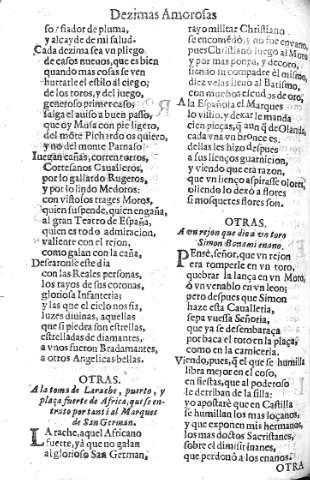 Dezimas Amorosas
so, fiador de pluma,
y alcayde de mi salud.
Cada dezima sea vn pliego
de casos nueuos, que es bien
quando mas cosas se ven
hurtarle el estilo al ciego;
de los toros, y del juego,
generoso primer caso;
salga el auiso a buen passo,
que oy Musa con pie ligero,
del môte Pichardo os quiero,
y no del monte Parnaso
Iuegan cañas, corren toros,
Cortesanos Caualleros,
por lo gallardo Rugeros,
y por lo lindo Medoros:
con vistosos trages Moros,
quien suspende, quien engaña,
al gran Teatro de España,
quien es todo admiracion,
valiente con el rejon,
como galan con la caña.
Desearonse este dia
con las Reales personas,
los rayos de sus coronas,
gloriosa Infanteria;
y las que el cielo nos fia,
luzes diuinas, aquellas
que si piedra son estrellas,
estrelladas de diamantes,
a vnos fueron Bradamantes,
a otros Angelicas bellas.
OTRAS.
A la toma de Larache, puerto, y
plaça fuerte de Africa, que se en-
trato por tanti al Marques
de San German.
LArache, aquel Africano
fuerte, ya que no galan
al glorioso San German,
rayo militar Christiano
se encomêdò, y no fue en vano,
pues Christianò luego al Moro
y por mas pompa, y decoro,
siendo su compadre el mismo,
diez velas lleuò al Batismo,
con muchos escudos de oro,
A la Española el Marques
lo vistio, y dexar le manda
cien pieças, q̃ aunq̃ de Olanda,
cada vna vn bronce es:
dellas les hizo despues
a sus lienços guarnicion,
y viendo que era razon,
que vn lienço aspirasse olores,
oliendo lo dexò a flores
si mosquetes flores son.
OTRAS.
A vn rejon que dio a vn toro
Simon Bonami enano.
PEnsè, señor, que vn rejon
era romperle en vn toro,
quebrar la lança en vn Moro,
ò vn venablo en vn leon;
pero despues que Simon
haze esta Caualleria,
sepa vuessa Señoria,
que ya se desembaraça
por baca el toro en la plaça,
como en la carniceria.
Viendo, pues, q̃ el que se humilla
libra mejor en el coso,
en fiestas, que al poderoso
le derriban de la silla:
yo apostarè que en Castilla
se humillan los mas loçanos,
y que exponen mis hermanos,
los mas doctos Sacristanes,
sobre el dimisit inanes,
que perdonò a los enanos.
OTRA